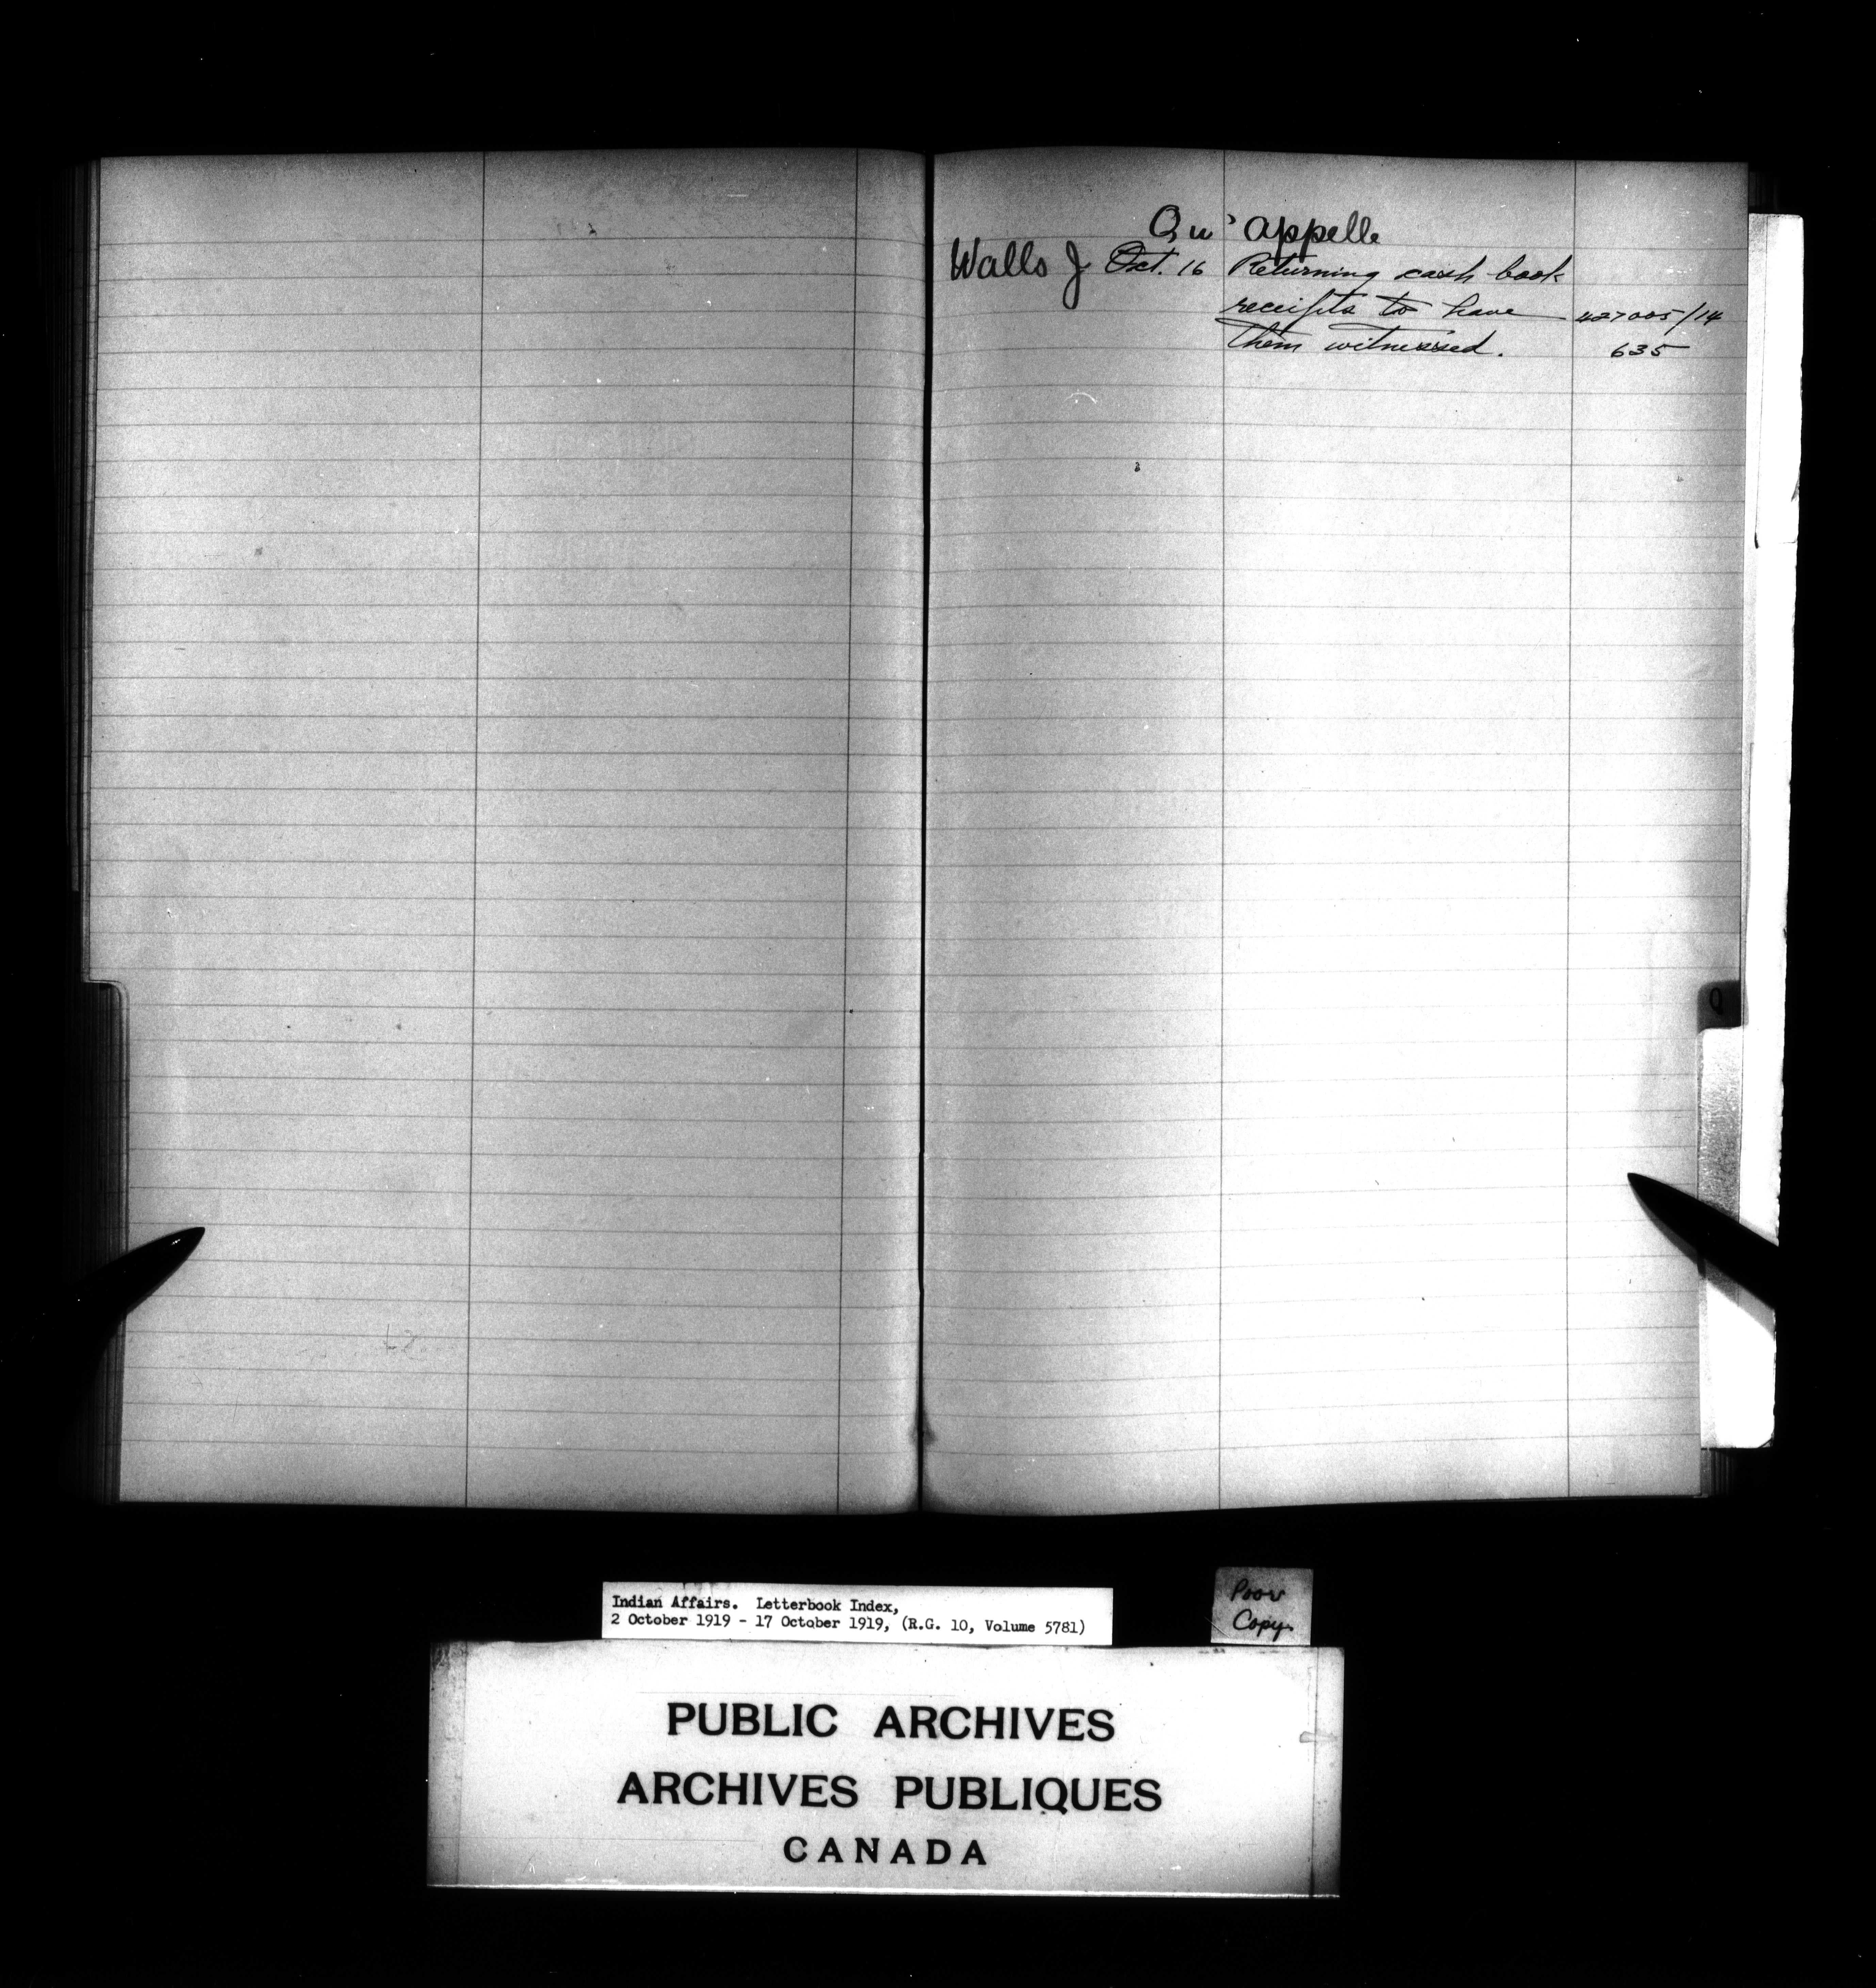 Qu'appelle
Walls J Oct. 16 Returning cash book
receipts to have 427005/14
them witnessed. 635
Q
Indian Affairs. Letterbook Index,
2 October 1919 - 17 October 1919, (R.G. 10, Volume 5781)
Poor
Copy.
PUBLIC ARCHIVES
ARCHIVES PUBLIQUES
CANADA